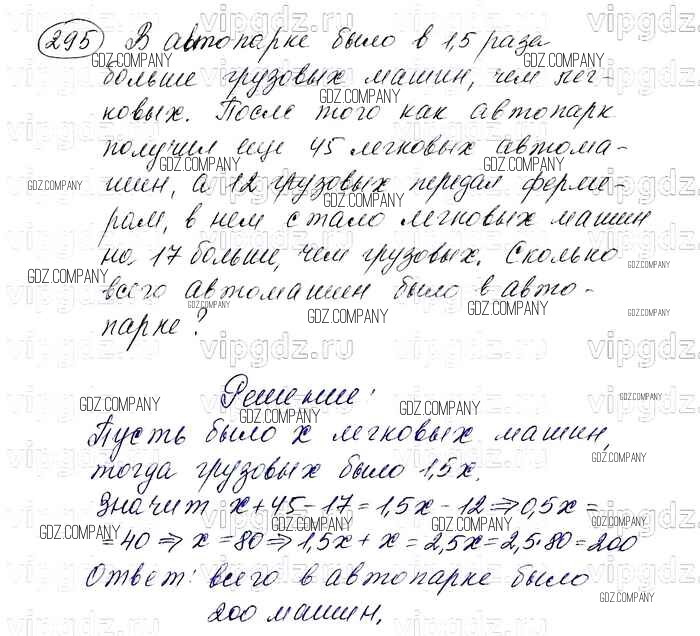 295 В автопарке было в 1,5 раза
больше грузовых машин, чем лег-
ковых. После того как автопарк
получил еще 45 легковых автома-
шин, а 12 грузовых передал ферме-
рам, в нем стало легковых машин
на 17 больше, чем грузовых. Сколько
всего автомашин было в авто-
парке?
Решение:
Пусть было x легковых машин,
тогда грузовых было 1,5x.
Значит x+45-17=1,5x-12⇒0,5x=
=40⇒x=80⇒1,5x+x=2,5x=2,5·80=200
Ответ: всего в автопарке было
200 машин.